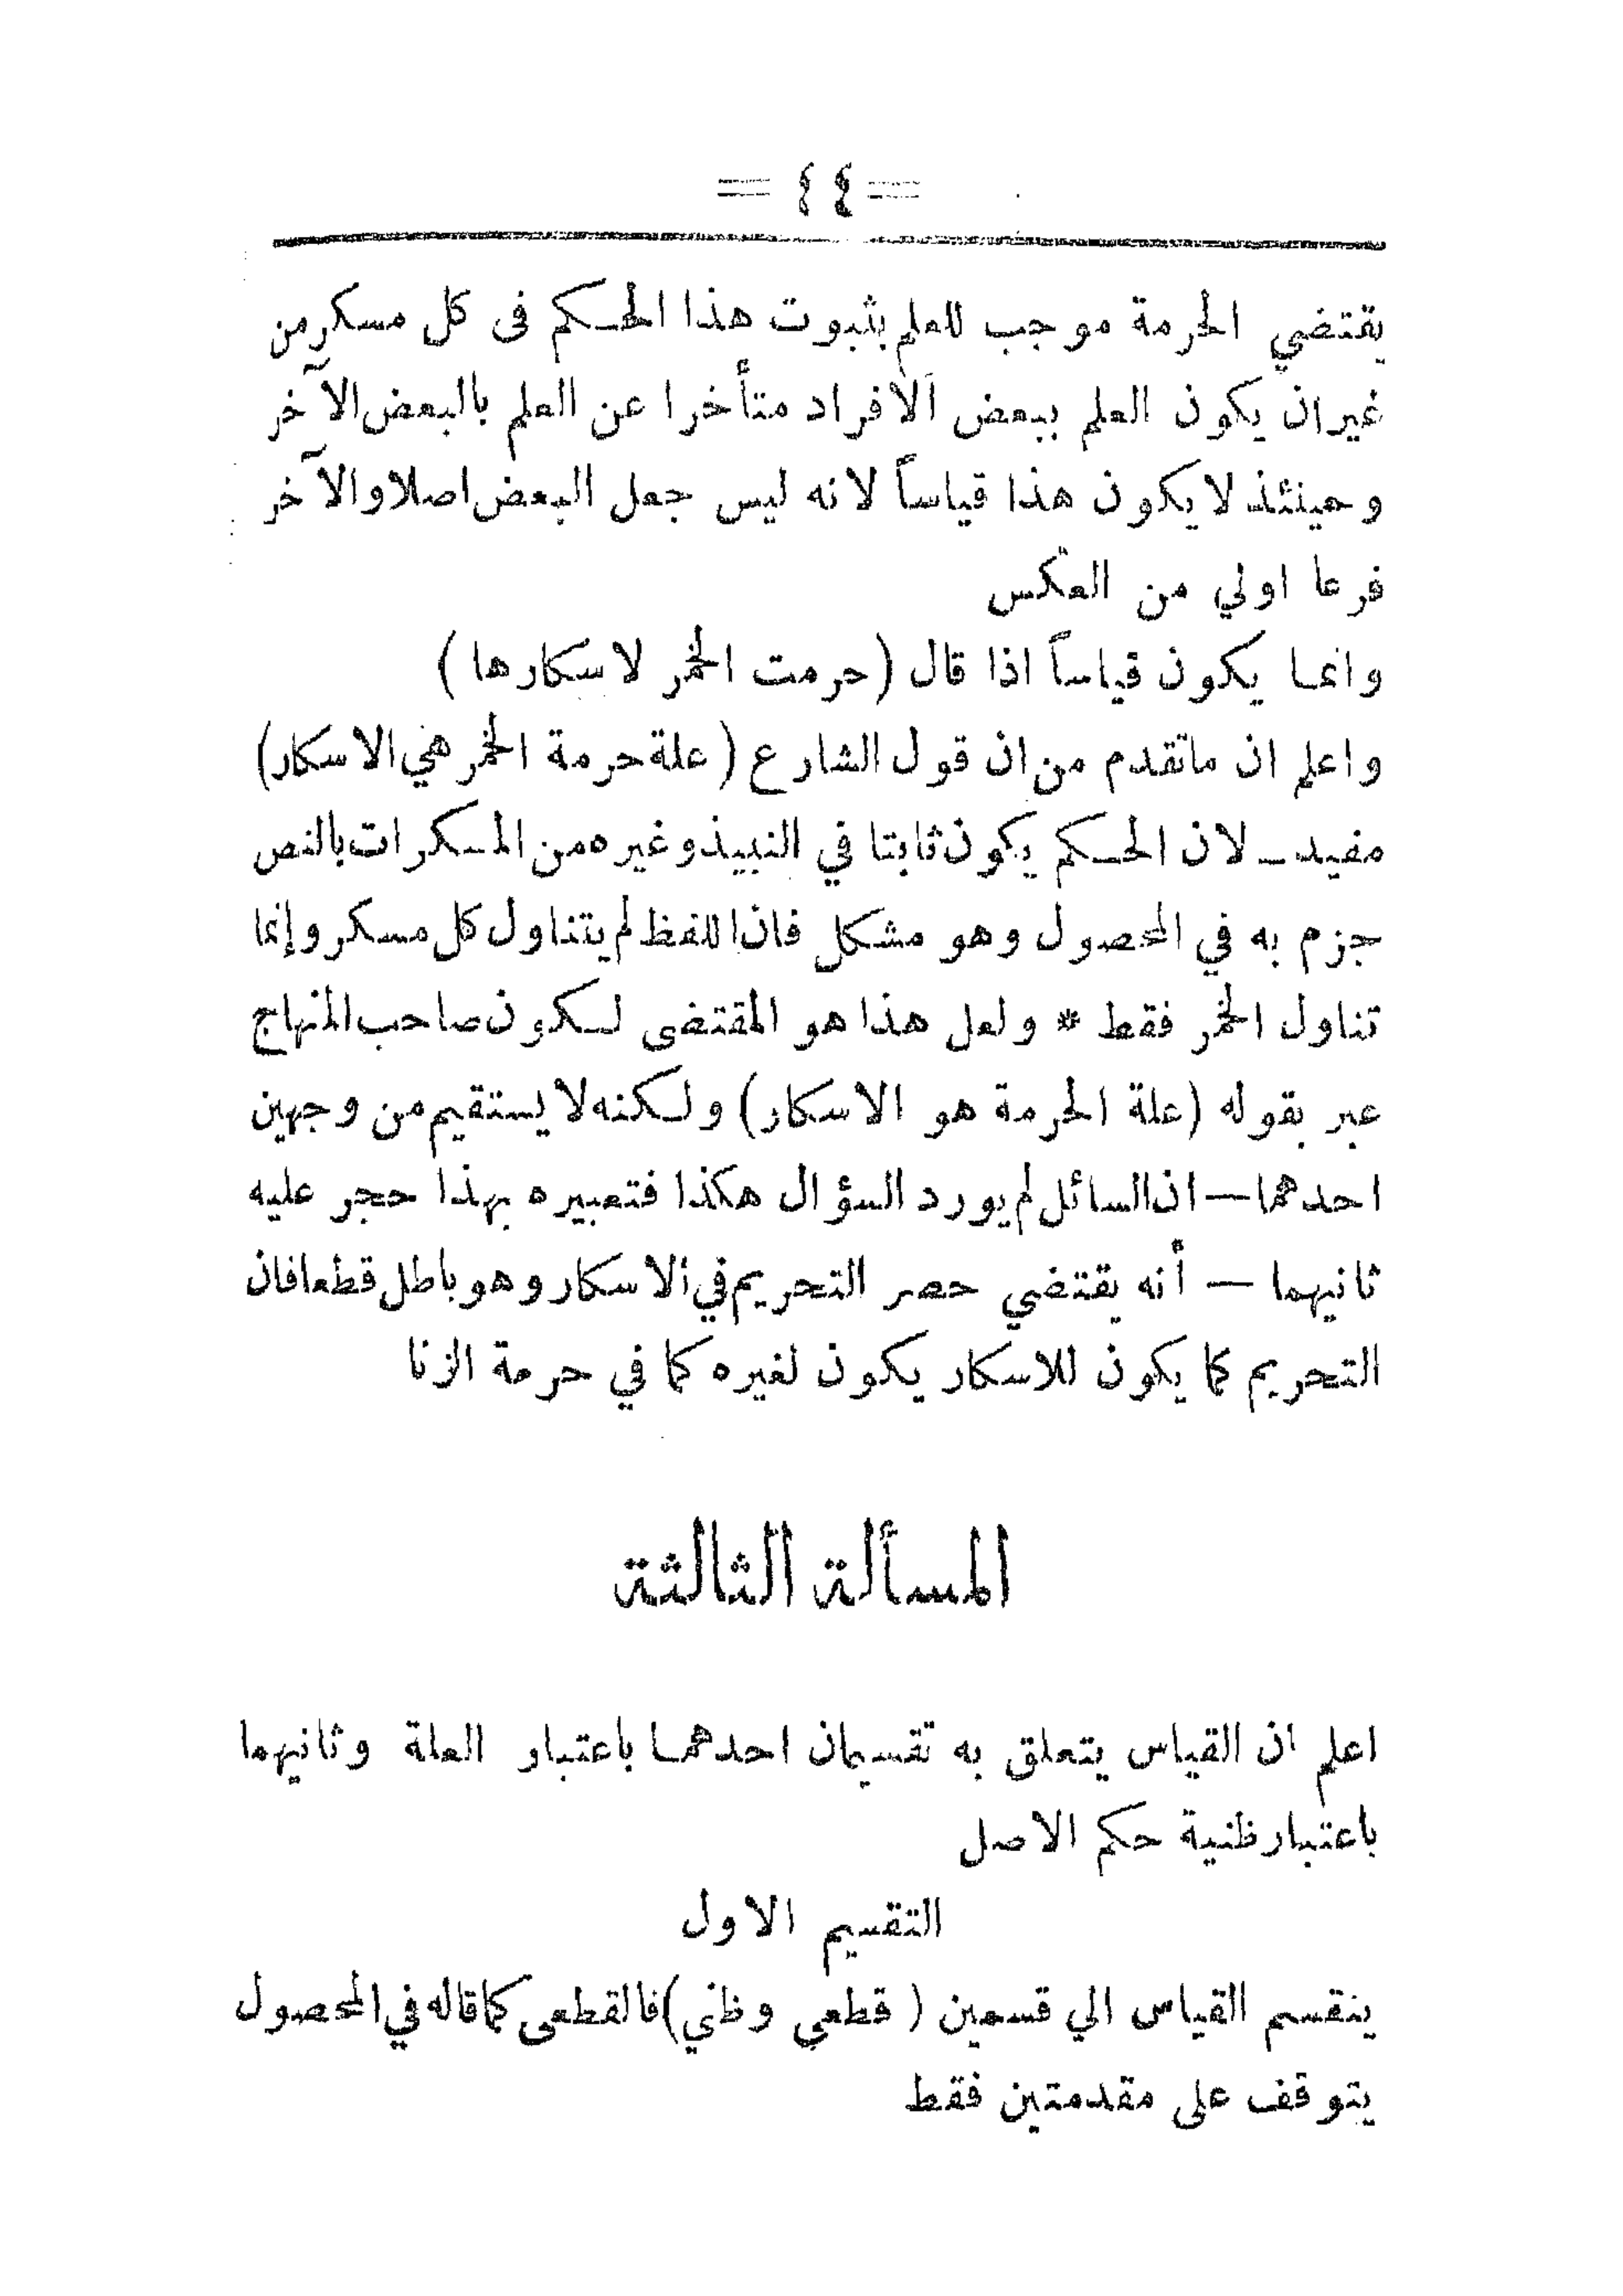 = ٤٤ =
يقتضي الحرمة موجب للعلم بثبوت هذا الحكم فى كل مسكر من
غير ان يكون العلم ببعض الافراد متأخرا عن العلم بالبعض الآخر
وحينئذ لا يكون هذا قياساً لانه ليس جعل البعض اصلا والآخر
فرعا اولي من العكس
وانما يكون قياساً اذا قال (حرمت الخمر لاسكارها)
واعلم ان ماتقدم من ان قول الشارع (علة حرمة الخمر هي الاسكار)
مفيد ــ لان الحكم يكون ثابتا في النبيذ وغيره من المسكرات بالنص
جزم به في المحصول وهو مشكل فان اللفظ لم يتناول كل مسكر وإنما
تناول الخمر فقط * ولعل هذا هو المقتضى لسكون صاحب المنهاج
عبر بقوله (علة الحرمة هو الاسكار) ولكنه لا يستقيم من وجهين
احدهما — ان السائل لم يورد السؤال هكذا فتعبيره بهذا حجر عليه
ثانيهما — أنه يقتضي حصر التحريم في الاسكار وهو باطل قطعا فان
التحريم كما يكون للاسكار يكون لغيره كما في حرمة الزنا
المسألة الثالثة
اعلم ان القياس يتعلق به تقسيمان احدهما باعتبار العلة وثانيهما
باعتبار ظنية حكم الاصل
التقسيم الاول
ينقسم القياس الي قسمين (قطعي وظني) فالقطعى كما قاله في المحصول
يتوقف على مقدمتين فقط